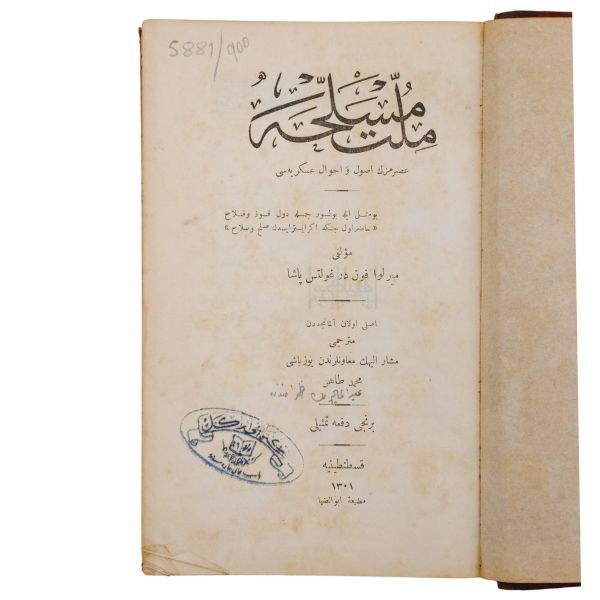 5881/900
ملّت مسلّحه
عصرمزك اصول و احوال عسكريه‌سی
بومثل ايله بولور جمله دول فوز و فلاح
« حاضر اول جنكه اكر ايسترايسه‌ك صلح و صلاح »
مؤلفی
ميرلوا فون در غولتس پاشا
اصلی اولان آلمانجه‌دن
مترجمی
مشار اليهك معاونلرندن يوزباشی
محمد طاهر
برنجی دفعه تمثيلی
قسطنطينيه
١٣٠١
مطبعهٔ ابوالضيا